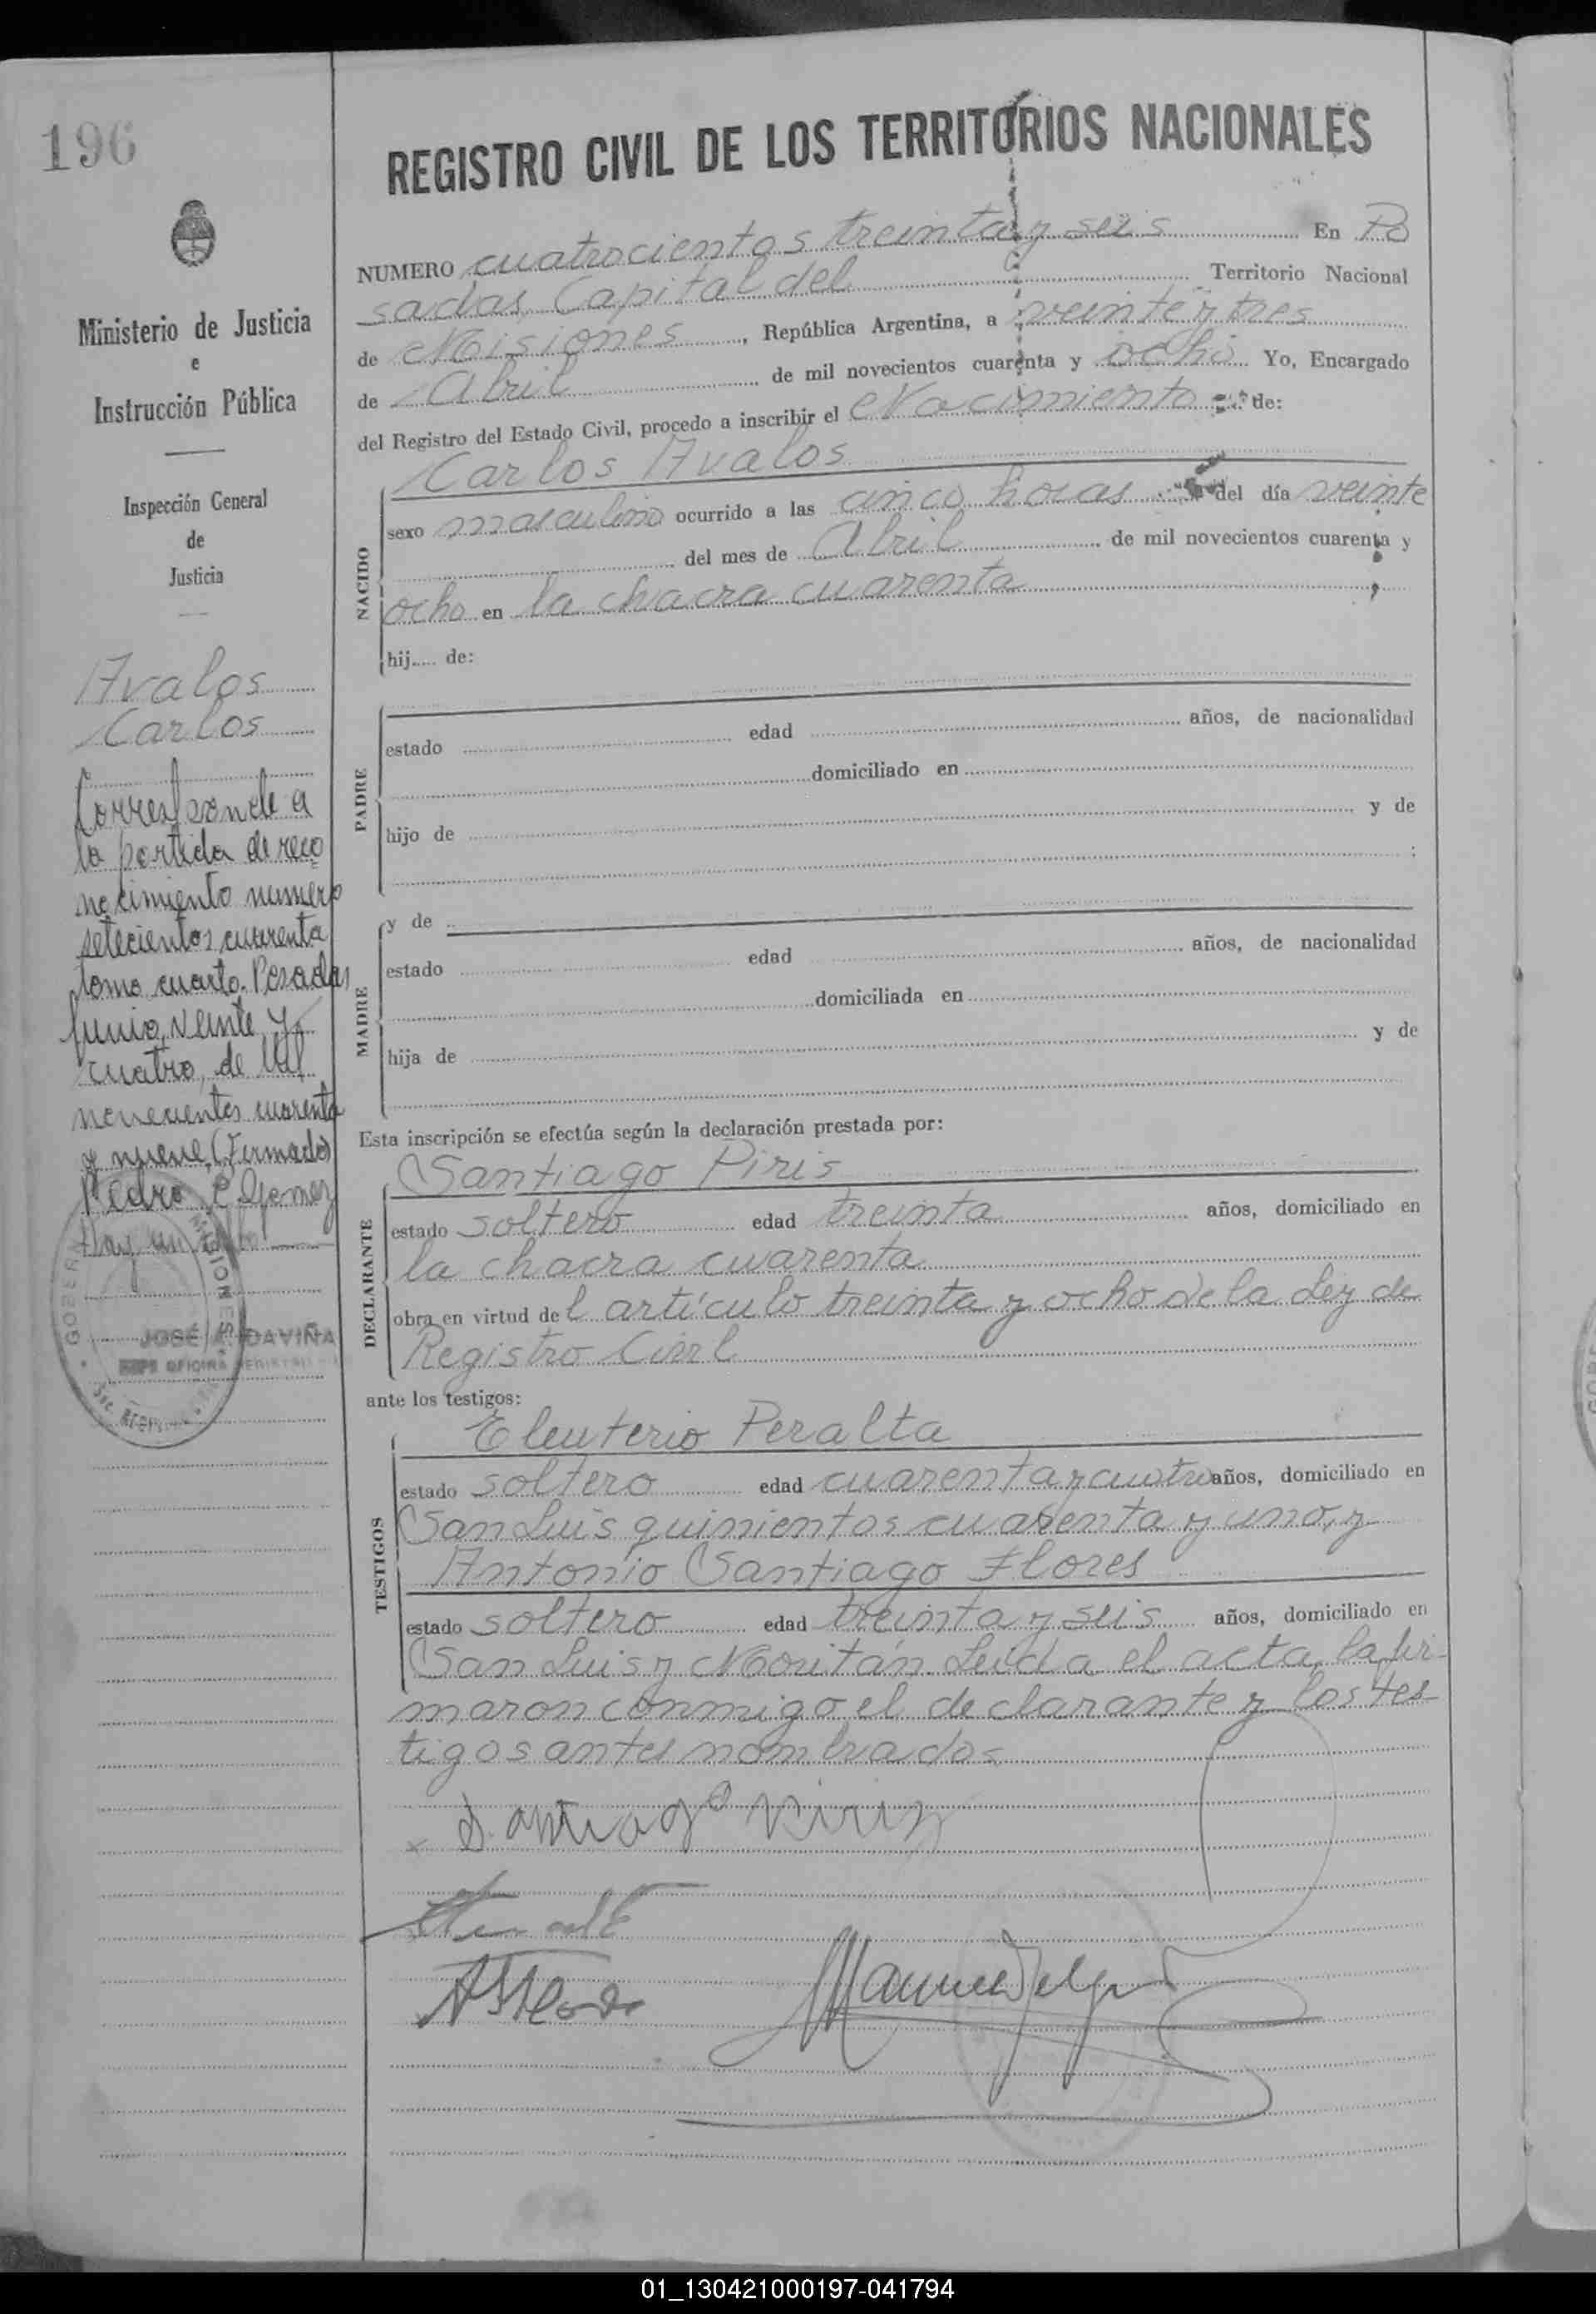 196
REGISTRO CIVIL DE LOS TERRITORIOS NACIONALES
Ministerio de Justicia
e
Instrucción Pública
Inspección General
de
Justicia
Avalos
Carlos
Corresponde a
la partida de reco
nocimiento numero
setecientos cuarenta
tomo cuarto. Posadas
Junio, veinte y
cuatro, de Mil
novecientos cuarenta
y nueve. (Firmado)
Pedro E Gomez
Hay un sello
GOBER MISIONES
JOSÉ A. DAVIÑA
JEFE OFICINA REGISTRO
NUMERO cuatrocientos treinta y seis En Po
sadas, Capital del Territorio Nacional
de Misiones, República Argentina, a veinte y tres
de Abril de mil novecientos cuarenta y ocho Yo, Encargado
del Registro del Estado Civil, procedo a inscribir el Nacimiento de:
NACIDO
Carlos Avalos
sexo masculino ocurrido a las cinco horas del día veinte
del mes de Abril de mil novecientos cuarenta y
ocho en la chacra cuarenta
hij..... de:
PADRE
estado edad años, de nacionalidad
domiciliado en
hijo de y de
;
MADRE
y de
estado edad años, de nacionalidad
domiciliada en
hija de y de
Esta inscripción se efectúa según la declaración prestada por:
DECLARANTE
Santiago Piris
estado soltero edad treinta años, domiciliado en
la chacra cuarenta
obra en virtud del artículo treinta y ocho de la Ley de
Registro Civil
ante los testigos:
TESTIGOS
Eleuterio Peralta
estado soltero edad cuarenta y cuatro años, domiciliado en
San Luis quinientos cuarenta y uno, y
Antonio Santiago Flores
estado soltero edad treinta y seis años, domiciliado en
San Luis y Moritán. Leida el acta, la fir-
maron conmigo el declarante y los tes-
tigos antes nombrados
Santiago Piris
01_130421000197-041794